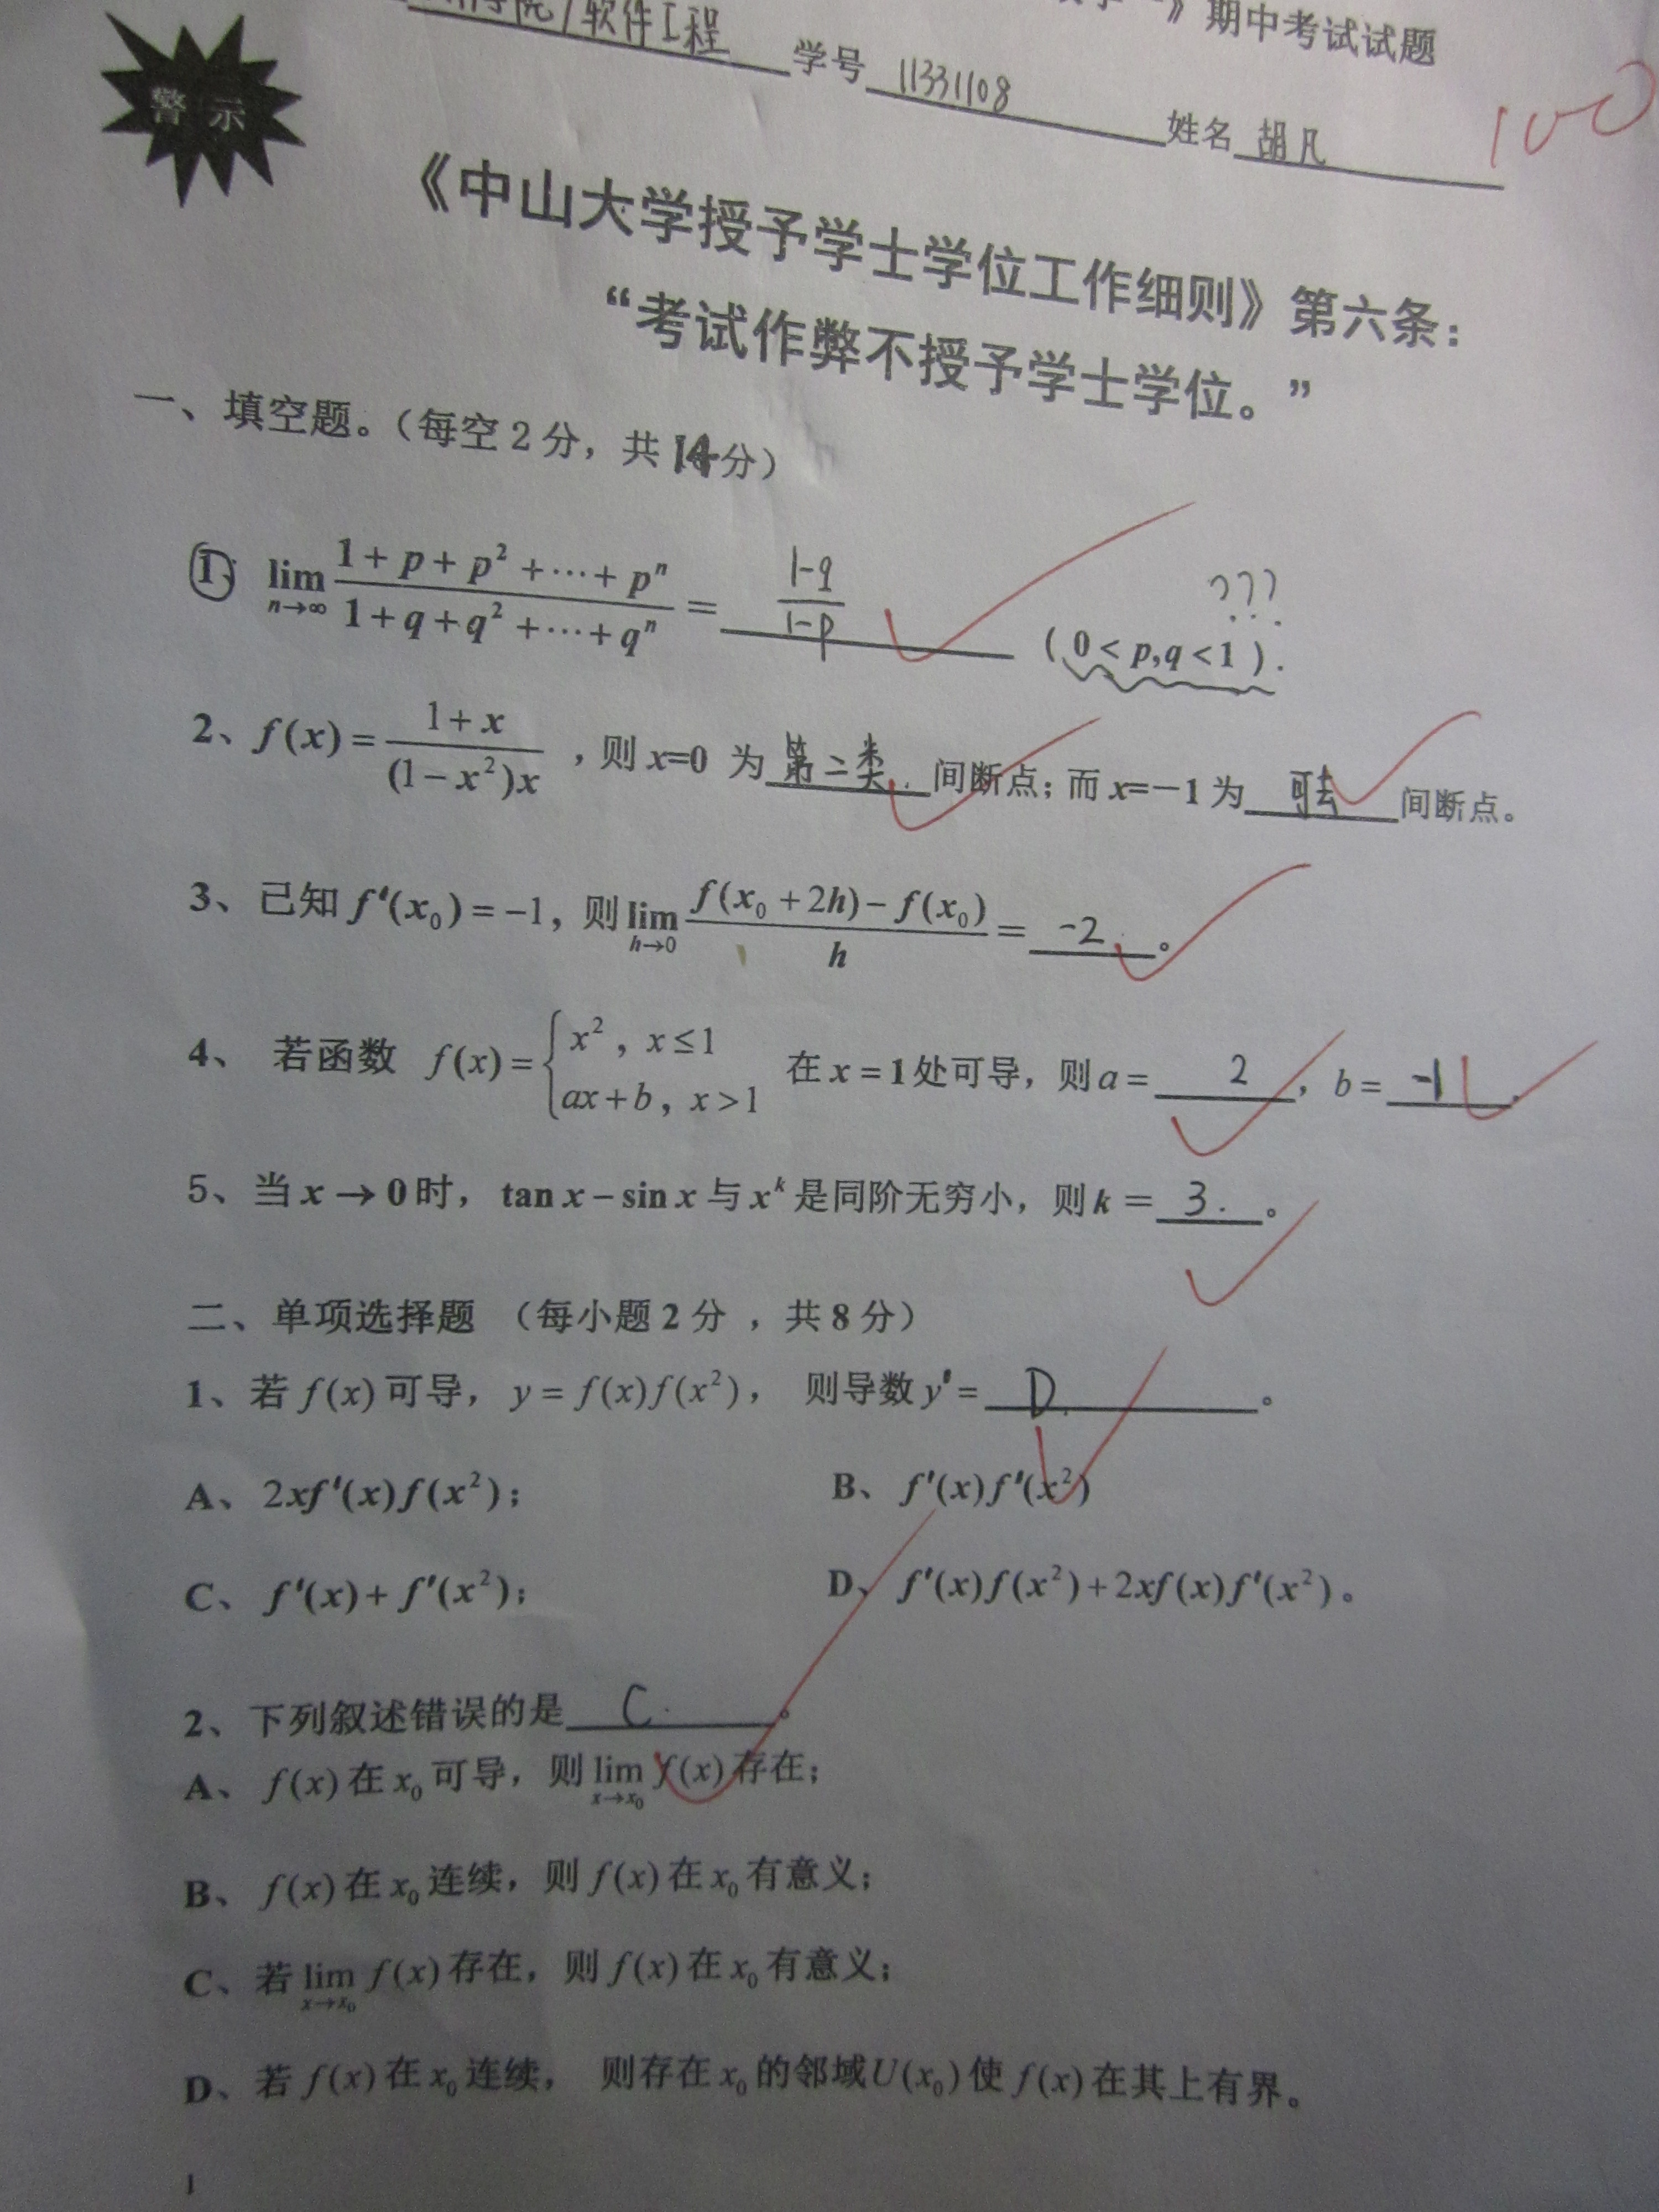 院/软件工程 学号 11331108 姓名 胡凡
》期中考试试题
100
警示
《中山大学授予学士学位工作细则》第六条：
“考试作弊不授予学士学位。”
一、填空题。（每空2分，共14分）
1、 lim n→∞ (1+p+p²+⋯+pⁿ)/(1+q+q²+⋯+qⁿ) = (1-q)/(1-p) (0<p,q<1). ???
2、f(x)=(1+x)/((1−x²)x) ，则 x=0 为 第二类. 间断点；而 x=−1 为 可去 间断点。
3、已知 f'(x₀)=−1，则 lim h→0 (f(x₀+2h)−f(x₀))/h = -2. 。
4、 若函数 f(x)={x²，x≤1 ax+b，x>1 在 x=1处可导，则 a= 2 ，b= -1 .
5、当 x→0时，tan x−sin x 与 xᵏ 是同阶无穷小，则 k= 3. 。
二、单项选择题 （每小题2分 ，共8分）
1、若 f(x) 可导，y=f(x)f(x²)， 则导数 y'= D. 。
A、2xf'(x)f(x²)； B、f'(x)f'(x²)
C、f'(x)+f'(x²)； D、f'(x)f(x²)+2xf(x)f'(x²)。
2、下列叙述错误的是 C. 。
A、f(x)在 x₀ 可导，则 lim x→x₀ f(x)存在；
B、f(x)在 x₀ 连续，则 f(x)在 x₀ 有意义；
C、若 lim x→x₀ f(x)存在，则 f(x)在 x₀ 有意义；
D、若 f(x)在 x₀ 连续， 则存在 x₀ 的邻域U(x₀)使 f(x)在其上有界。
1